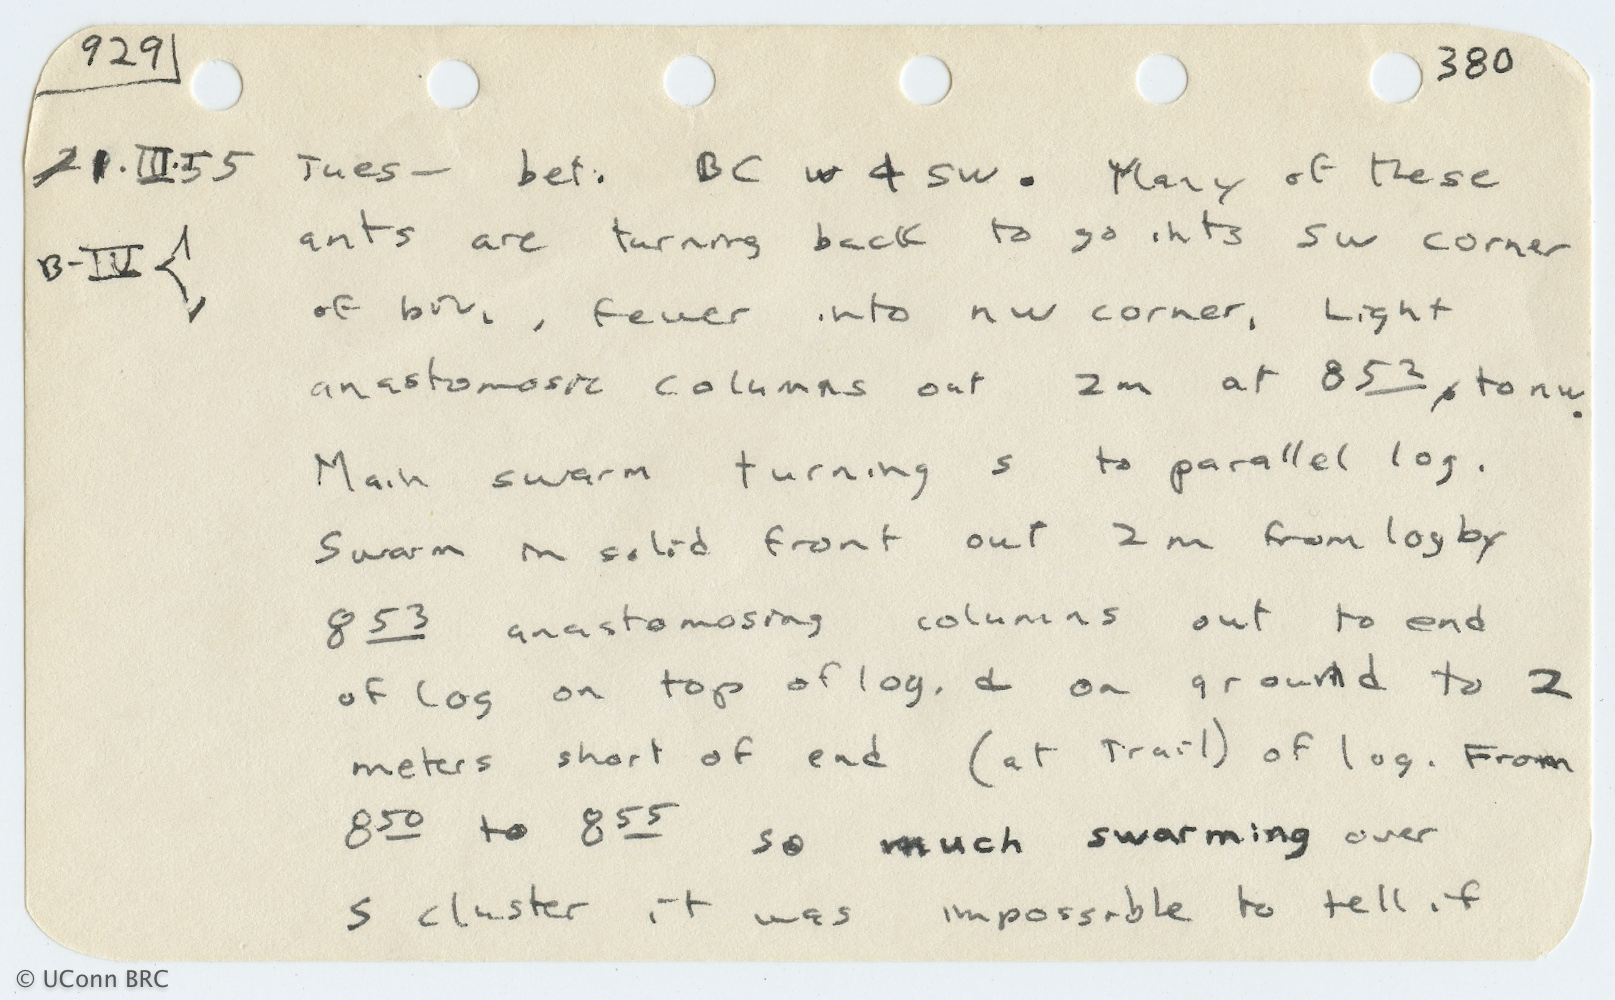 929 380
21.III.55 Tues- bet. BC w & SW. Many of these
B-IV ants are turning back to go into SW corner
of biv., fewer into nw corner, Light
anastomosic columns out 2m at 852, to nw.
Main swarm turning s to parallel log.
Swarm in solid front out 2m from log by
853 anastomosing columns out to end
of log on top of log. & on ground to 2
meters short of end (at Trail) of log. From
850 to 855 so much swarming over
S cluster it was impossible to tell if
© UConn BRC